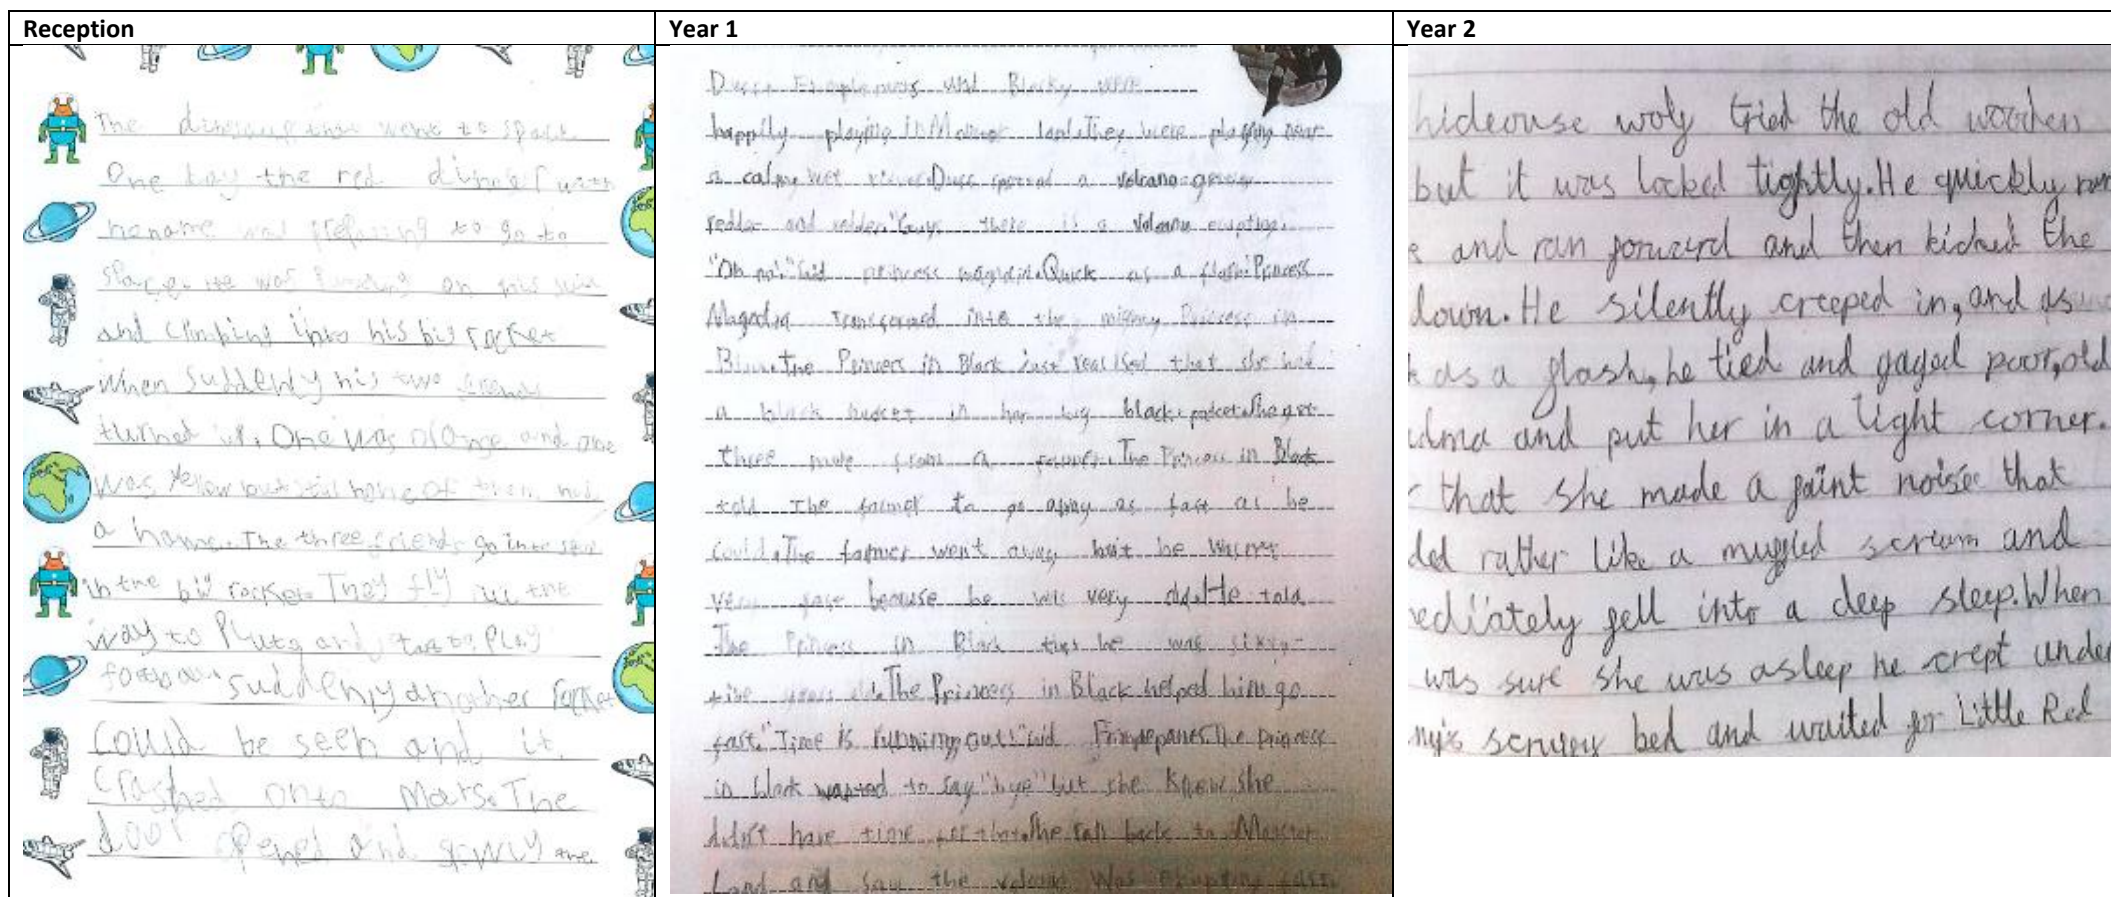 Reception
The that went to space
One day the red with
noname was preparing to go to
space. He was on his suit
and climbing into his big rocket
When suddenly his two friends
turned up. One was orange and one
was yellow but still none of them had
a home. The three friends go into
in the big rocket. They fly all the
way to Pluto and to play
football. suddenly another rocket
could be seen and it
crashed onto Mars. The
door opened and the
Year 1
and Blacky were
happily playing in land. They were playing near
a calm, wet river. Duss a volcano
redder and redder. "Guys there is a volcano erupting.
"Oh no." said princess Quick as a flash Princess
transformed into the mighty Princess in
Black. the Princess in Black just realised that she had
a black bucket in her big black pocket. She got
three more from a farmer. The Princess in Black
told the farmer to go away as fast as he
could. The farmer went away but he wasn't
very fast because he was very old. He told
The Princess in Black that he was sixty-
five years old. The Princess in Black helped him go
fast. "Time is running out!" said The princess
in black wanted to say "bye" but she knew she
didn't have time for that. She ran back to Monster
Land and saw the volcano was erupting
Year 2
hideouse woly tried the old wooden
but it was locked tightly. He quickly ran
and ran forward and then kicked the
down. He silently creeped in, and as
as a flash, he tied and gaged poor, old
dma and put her in a light corner.
that she made a faint noise that
ded rather like a muffled scream and
ediately fell into a deep sleep. When
was sure she was asleep he crept under
ny's bed and waited for Little Red